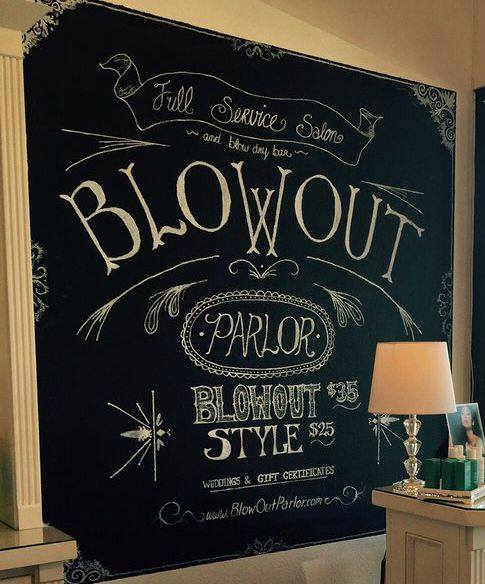 Full Service Salon
and blow dry bar
BLOWOUT
PARLOR
BLOWOUT $35
STYLE $25
WEDDINGS & GIFT CERTIFICATES
www.BlowOutParlor.com